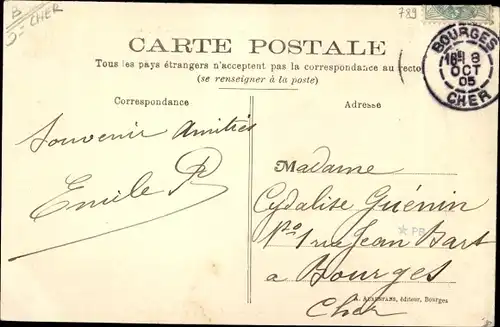 B
CHER
789
CARTE POSTALE
Tous les pays étrangers n'acceptent pas la correspondance au recto
(se renseigner à la poste)
BOURGES
18 8
OCT
05
CHER
Correspondance
Adresse
Souvenir Amitiés
Emile P
Madame
Cydalise Guénin
1 rue Jean Bart
a Bourges
Cher
* PB
éditeur, Bourges